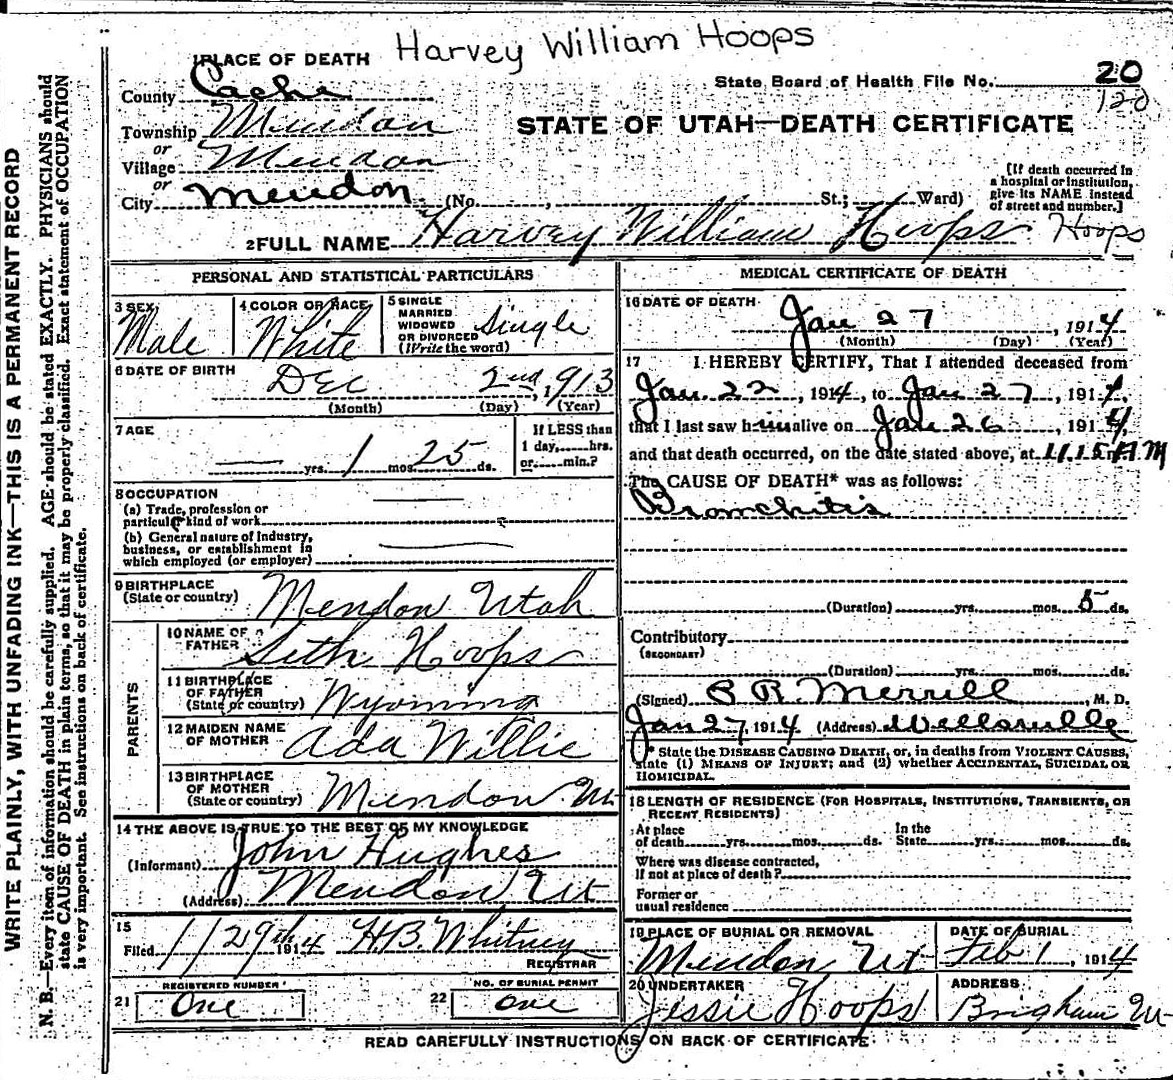 Harvey William Hoops
1 PLACE OF DEATH
State Board of Health File No. 20
120
County Cache
STATE OF UTAH—DEATH CERTIFICATE
Township Mendon
or
Village Mendon
or
City Mendon (No. , St.; Ward)
[If death occurred in
a hospital or institution,
give its NAME instead
of street and number.]
2 FULL NAME Harvey William Hoops Hoops
PERSONAL AND STATISTICAL PARTICULARS
3 SEX Male
4 COLOR OR RACE White
5 SINGLE
MARRIED
WIDOWED
OR DIVORCED
(Write the word) Single
6 DATE OF BIRTH
Dec 2nd, 1913
(Month) (Day) (Year)
7 AGE
— yrs. 1 mos. 25 ds.
If LESS than
1 day, hrs.
or min.?
8 OCCUPATION
(a) Trade, profession or
particular kind of work
(b) General nature of Industry,
business, or establishment in
which employed (or employer)
9 BIRTHPLACE
(State or country) Mendon Utah
PARENTS
10 NAME OF
FATHER Seth Hoops
11 BIRTHPLACE
OF FATHER
(State or country) Wyoming
12 MAIDEN NAME
OF MOTHER Ada Willie
13 BIRTHPLACE
OF MOTHER
(State or country) Mendon Ut
14 THE ABOVE IS TRUE TO THE BEST OF MY KNOWLEDGE
(Informant) John Hughes
(Address) Mendon, Ut
15
Filed 1/29th 1914 H.B. Whitney
REGISTRAR
21 REGISTERED NUMBER
One
22 NO. OF BURIAL PERMIT
one
MEDICAL CERTIFICATE OF DEATH
16 DATE OF DEATH
Jan 27, 1914
(Month) (Day) (Year)
17 I HEREBY CERTIFY, That I attended deceased from
Jan. 22, 1914, to Jan 27, 1914.
that I last saw him alive on Jan 26, 1914,
and that death occurred, on the date stated above, at 11.15 A.M
The CAUSE OF DEATH* was as follows:
Bronchitis
(Duration) yrs. mos. 5 ds.
Contributory
(SECONDARY)
(Duration) yrs. mos. ds.
(Signed) P R. Merrill, M. D.
Jan 27, 1914 (Address) Wellsville
* State the DISEASE CAUSING DEATH, or, in deaths from VIOLENT CAUSES,
state (1) MEANS OF INJURY; and (2) whether ACCIDENTAL, SUICIDAL OR
HOMICIDAL.
18 LENGTH OF RESIDENCE (FOR HOSPITALS, INSTITUTIONS, TRANSIENTS, OR
RECENT RESIDENTS)
At place
of death yrs. mos. ds.
In the
State yrs. mos. ds.
Where was disease contracted,
if not at place of death?
Former or
usual residence
19 PLACE OF BURIAL OR REMOVAL
Mendon, Ut
DATE OF BURIAL
Feb 1, 1914
20 UNDERTAKER
Jessie Hoops
ADDRESS
Brigham Ut
READ CAREFULLY INSTRUCTIONS ON BACK OF CERTIFICATE
WRITE PLAINLY, WITH UNFADING INK—THIS IS A PERMANENT RECORD
N. B.—Every item of information should be carefully supplied. AGE should be stated EXACTLY. PHYSICIANS should
state CAUSE OF DEATH in plain terms, so that it may be properly classified. Exact statement of OCCUPATION
is very important. See instructions on back of certificate.